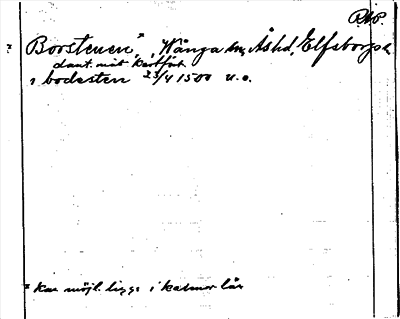 RAP.
Boostenen*, Wånga sn, Åshd, Elfsborgs l.
dat. mit Kartfört.
i bodesten 23/4 1500 u.o.
* Kan möjl. ligga i Kalmar län